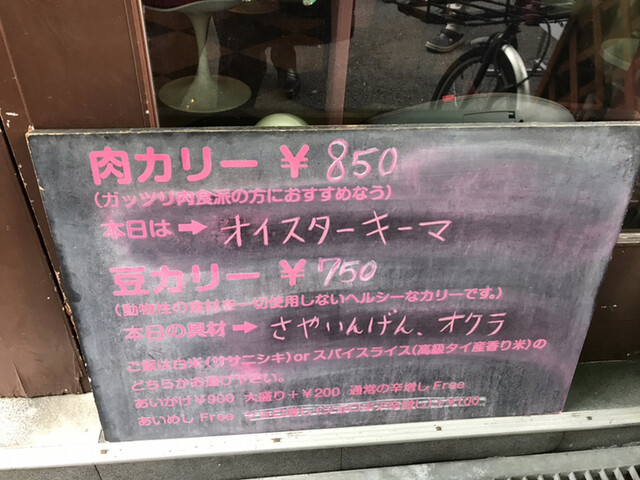 肉カリー ¥ 850
(ガッツリ肉食派の方におすすめなう)
本日は➡ オイスターキーマ
豆カリー ¥ 750
(動物性の食材を一切使用しないヘルシーなカリーです。)
本日の具材➡ さやいんげん、オクラ
ご飯は白米(ササニシキ)or スパイスライス(高級タイ産香り米)の
どちらかお選び下さい。
あいがけ¥900 大盛り+¥200 通常の辛増し Free
あいめし Free